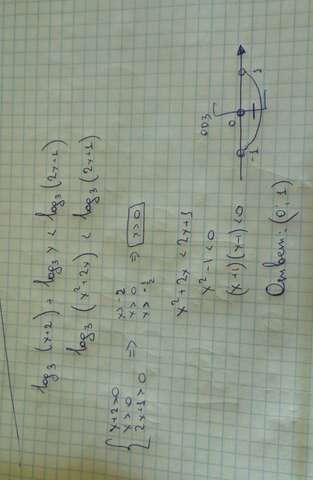 log₃ (x+2) + log₃ x < log₃ (2x+1)
log₃ (x²+2x) < log₃ (2x+1)
{ x+2>0 => x>-2 => x>0
x>0 x>0
2x+1>0 x>-½
x²+2x < 2x+1
x²-1<0
(x+1)(x-1)<0
ОДЗ
-1 0 1
Ответ: (0; 1)